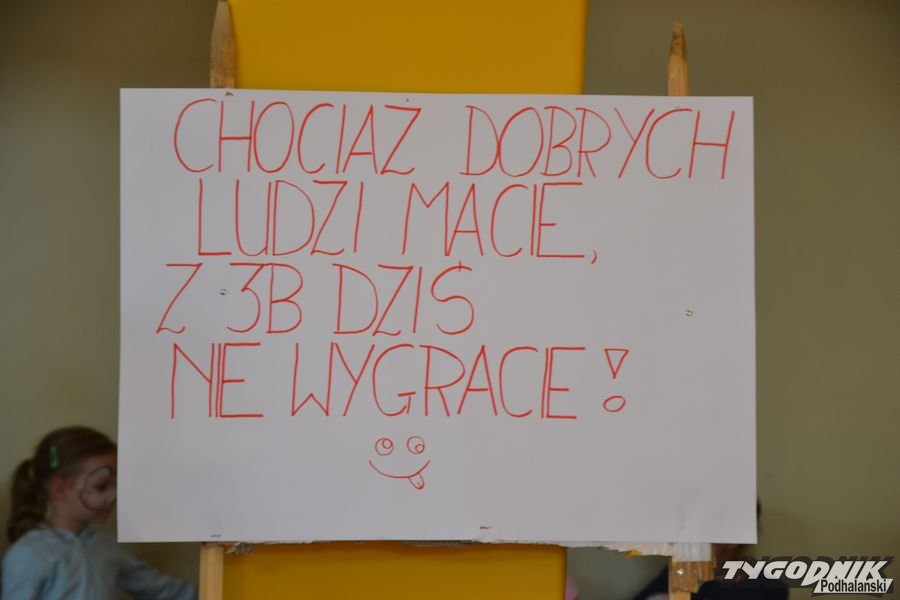 CHOCIAŻ DOBRYCH
LUDZI MACIE,
Z 3B DZIŚ
NIE WYGRACIE!
TYGODNIK
Podhalański